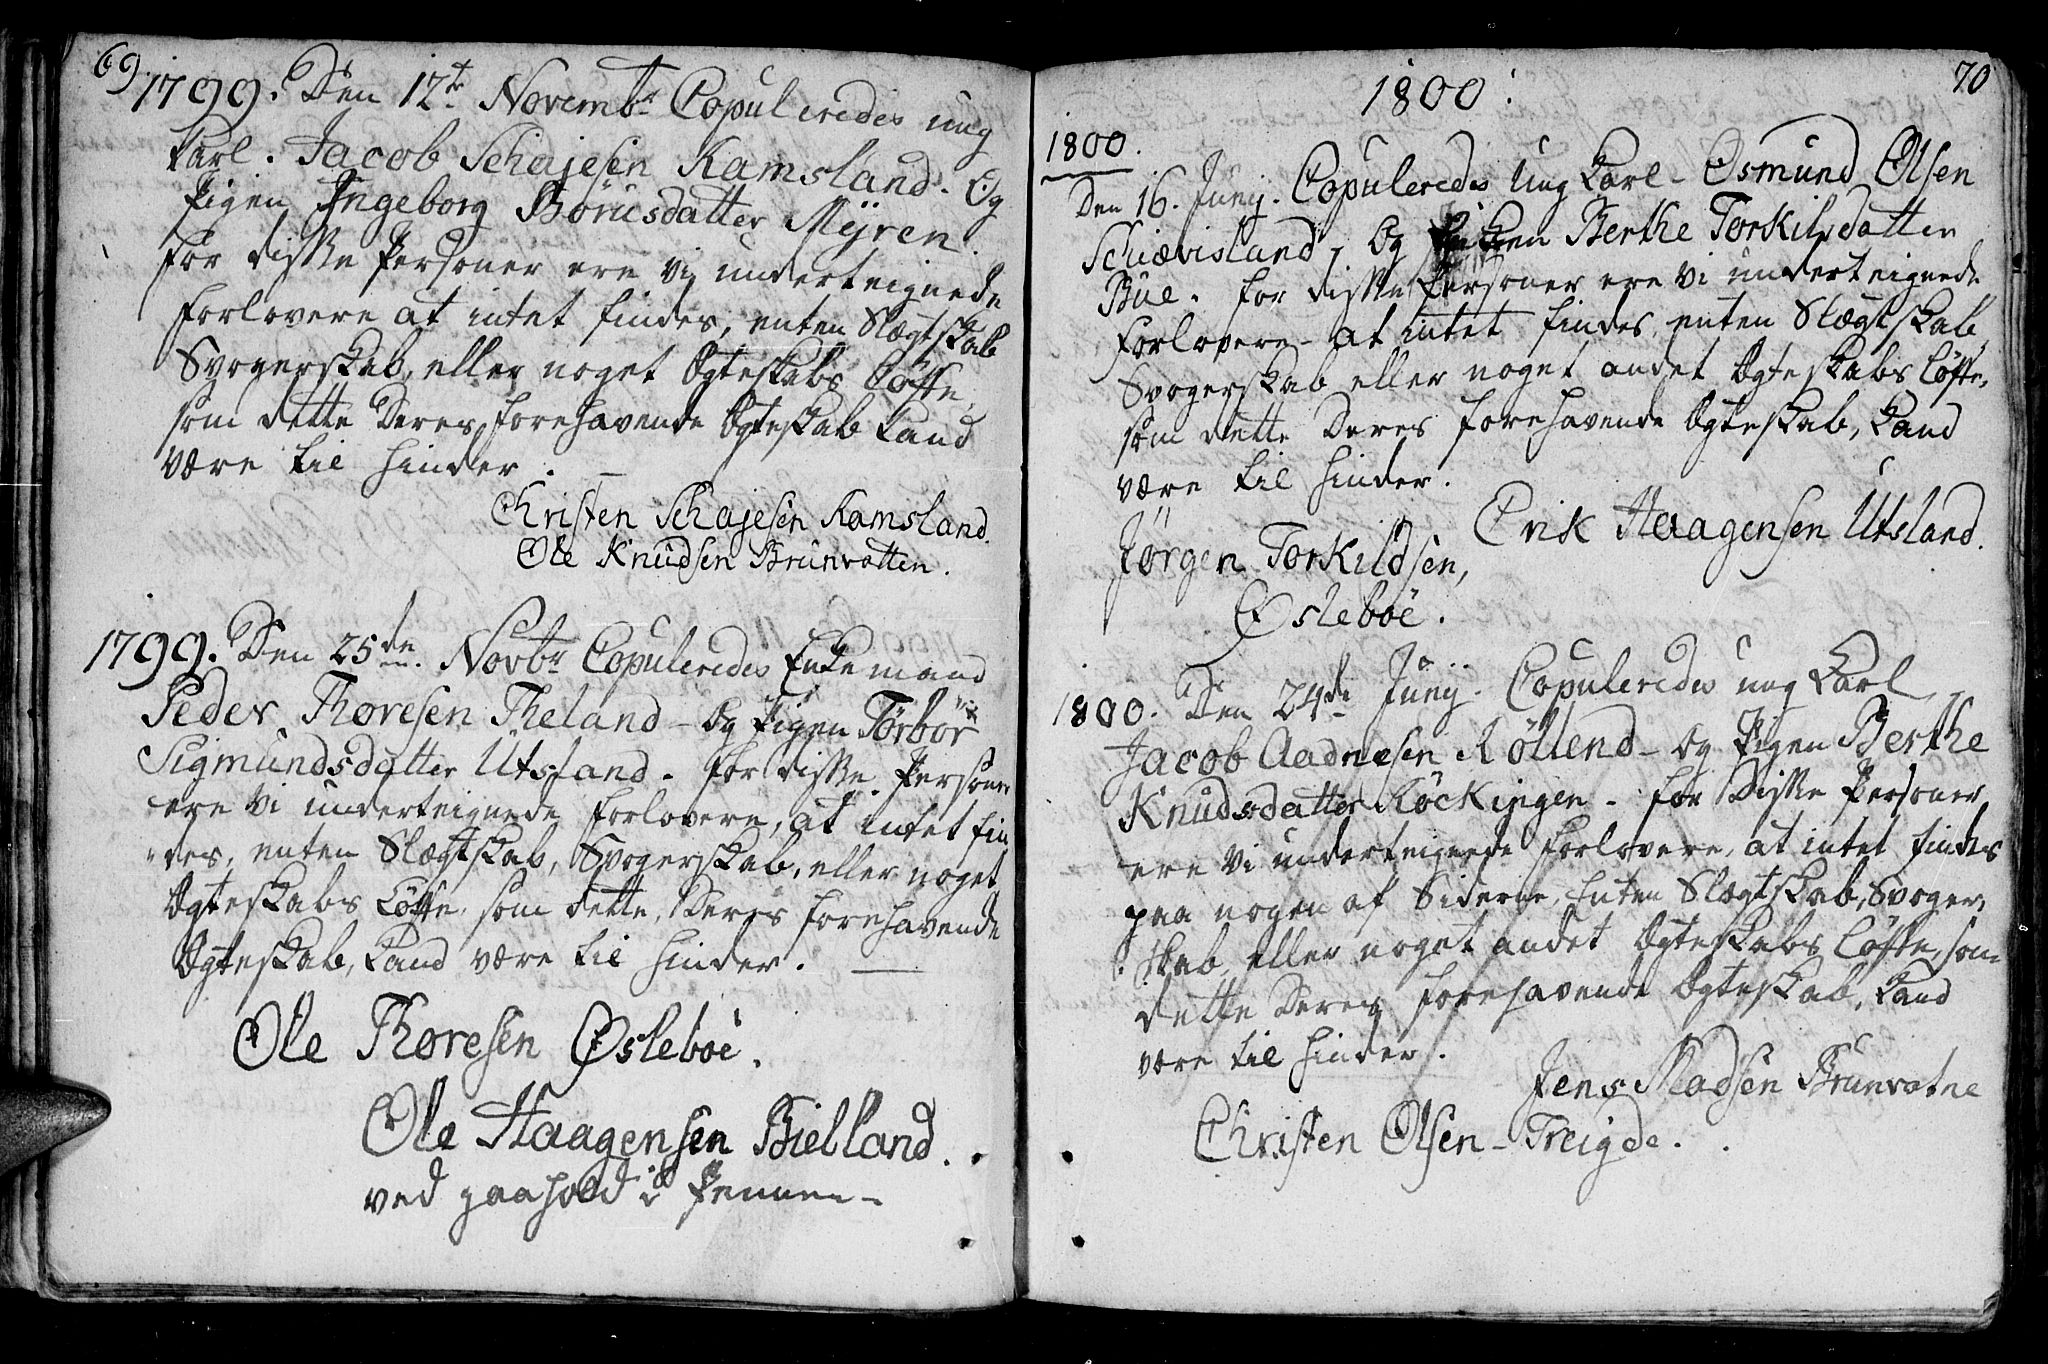 69
1799. Den 12te Novembr. Copuleredes ung
Karl. Jacob Schajesen Ramsland. Og
Pigen Ingeborg Børusdatter Myren.
for disse Personer ere vi underteignede
forlovere at intet findes, enten Slægtskab
Svogerskab, eller noget Ægteskabs Løfte,
som dette Deres forehavende Ægteskab kand
være til hinder. —
Christen Schajesen Ramsland.
Ole Knudsen Brunvatten.
1799. Den 25de Novbr. Copuleredes Enkemand
Peder Thoresen Theland - Og Pigen Torbor
Sigmundsdatter Utsland. for disse Personer
ere vi underteignede forlovere, at intet fin
des, enten Slægtskab, Svogerskab, eller noget
Ægteskabs Løfte, som dette, Deres forehavende
Ægteskab, kand være til hinder. —
Ole Thoresen Øsleboe.
Ole Haagensen Bielland.
ved paaholden Pennen -
70
1800.
1800.
Den 16. Junij. Copuleredes Ung Karl - Osmund Olsen
Schiævisland, Og Pigen Berthe Torkilsdatter
Bue. for disse Personer ere vi underteignede
forlovere - at intet findes enten Slægtskab,
Svogerskab eller noget andet Ægteskabs Løfte,
som dette Deres forehavende Ægteskab, kand
være til hinder.
Erik Haagensen Utsland.
Jørgen Torkildsen,
Øsleboe.
1800. Den 24de Junij. Copuleredes ung Karl
Jacob Aadnesen Røllend - Og Pigen Berthe
Knudsdatter Røckingen - for Disse Personer
ere vi underteignede forlovere, at intet findes
paa nogen af Siderne, Enten Slægtskab, Svoger,
skab, eller noget andet Ægteskabs Løfte, som
dette Deres forehavende Ægteskab, kand
være til hinder.
Jens Madsen Brunvatne
Christen Olsen - Treigde.